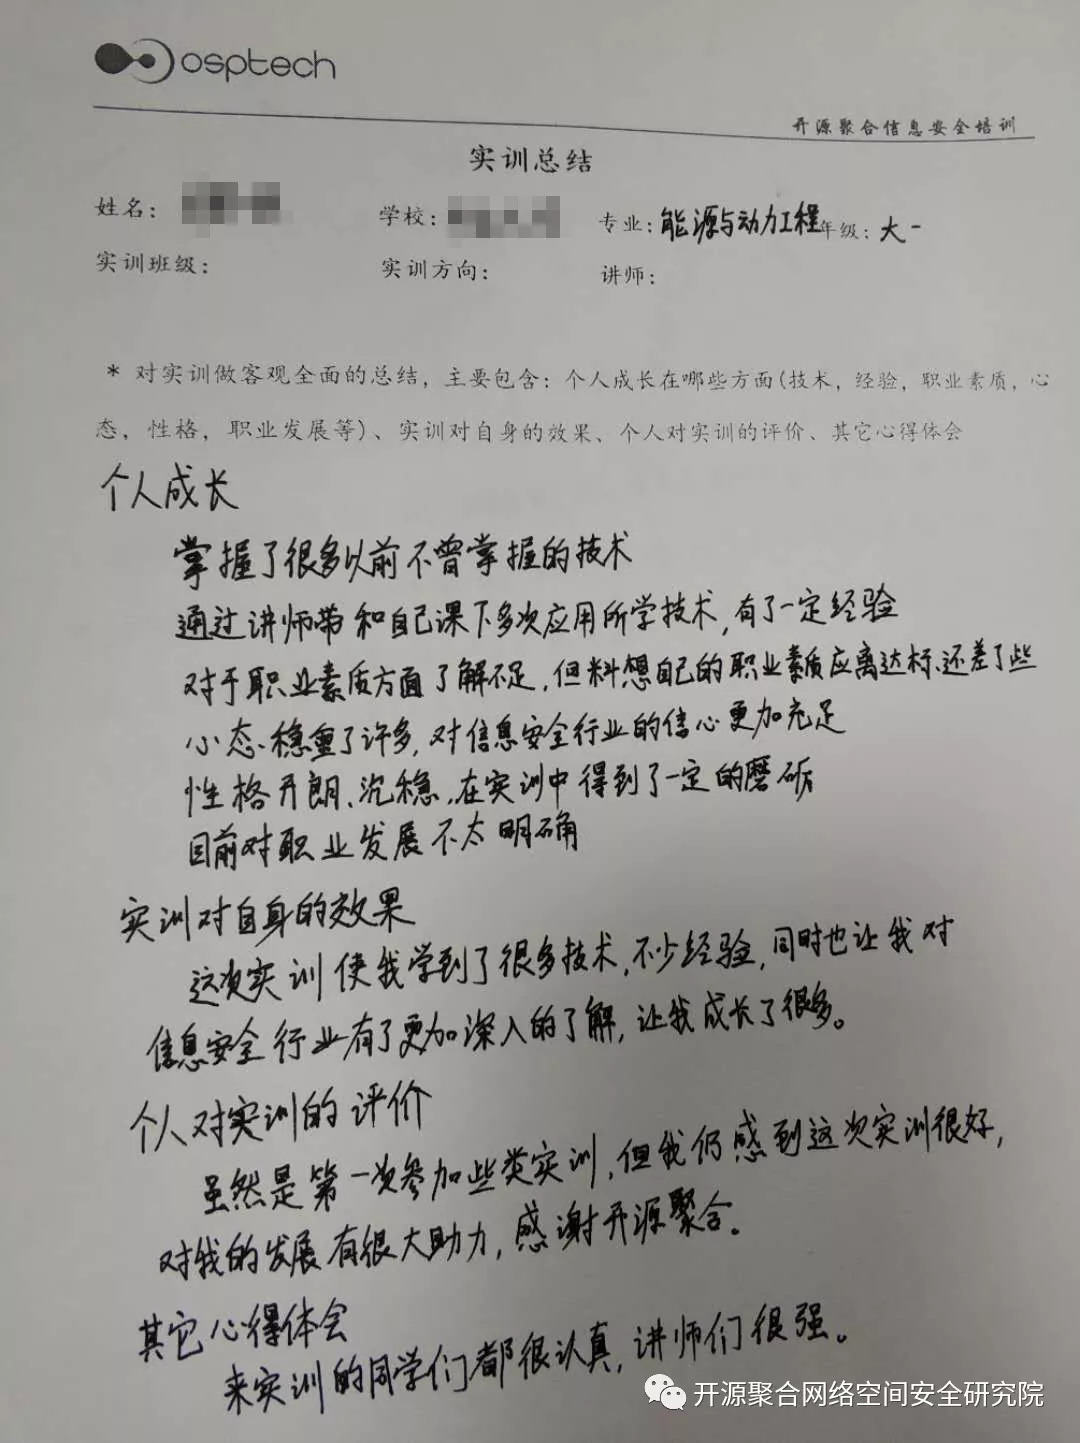 osptech
开源聚合信息安全培训
实训总结
姓名: 学校: 专业: 能源与动力工程 年级: 大一
实训班级: 实训方向: 讲师:
* 对实训做客观全面的总结，主要包含：个人成长在哪些方面(技术，经验，职业素质，心
态，性格，职业发展等)、实训对自身的效果、个人对实训的评价、其它心得体会
个人成长
掌握了很多以前不曾掌握的技术
通过讲师带和自己课下多次应用所学技术,有了一定经验
对于职业素质方面了解不足,但料想自己的职业素质应离达标、还差了些
心态、稳重了许多,对信息安全行业的信心更加充足
性格开朗、沉稳,在实训中得到了一定的磨砺
目前对职业发展不太明确
实训对自身的效果
这次实训使我学到了很多技术,不少经验,同时也让我对
信息安全行业有了更加深入的了解,让我成长了很多。
个人对实训的评价
虽然是第一次参加些类实训,但我仍感到这次实训很好,
对我的发展有很大助力,感谢开源聚合。
其它心得体会
来实训的同学们都很认真,讲师们很强。
开源聚合网络空间安全研究院